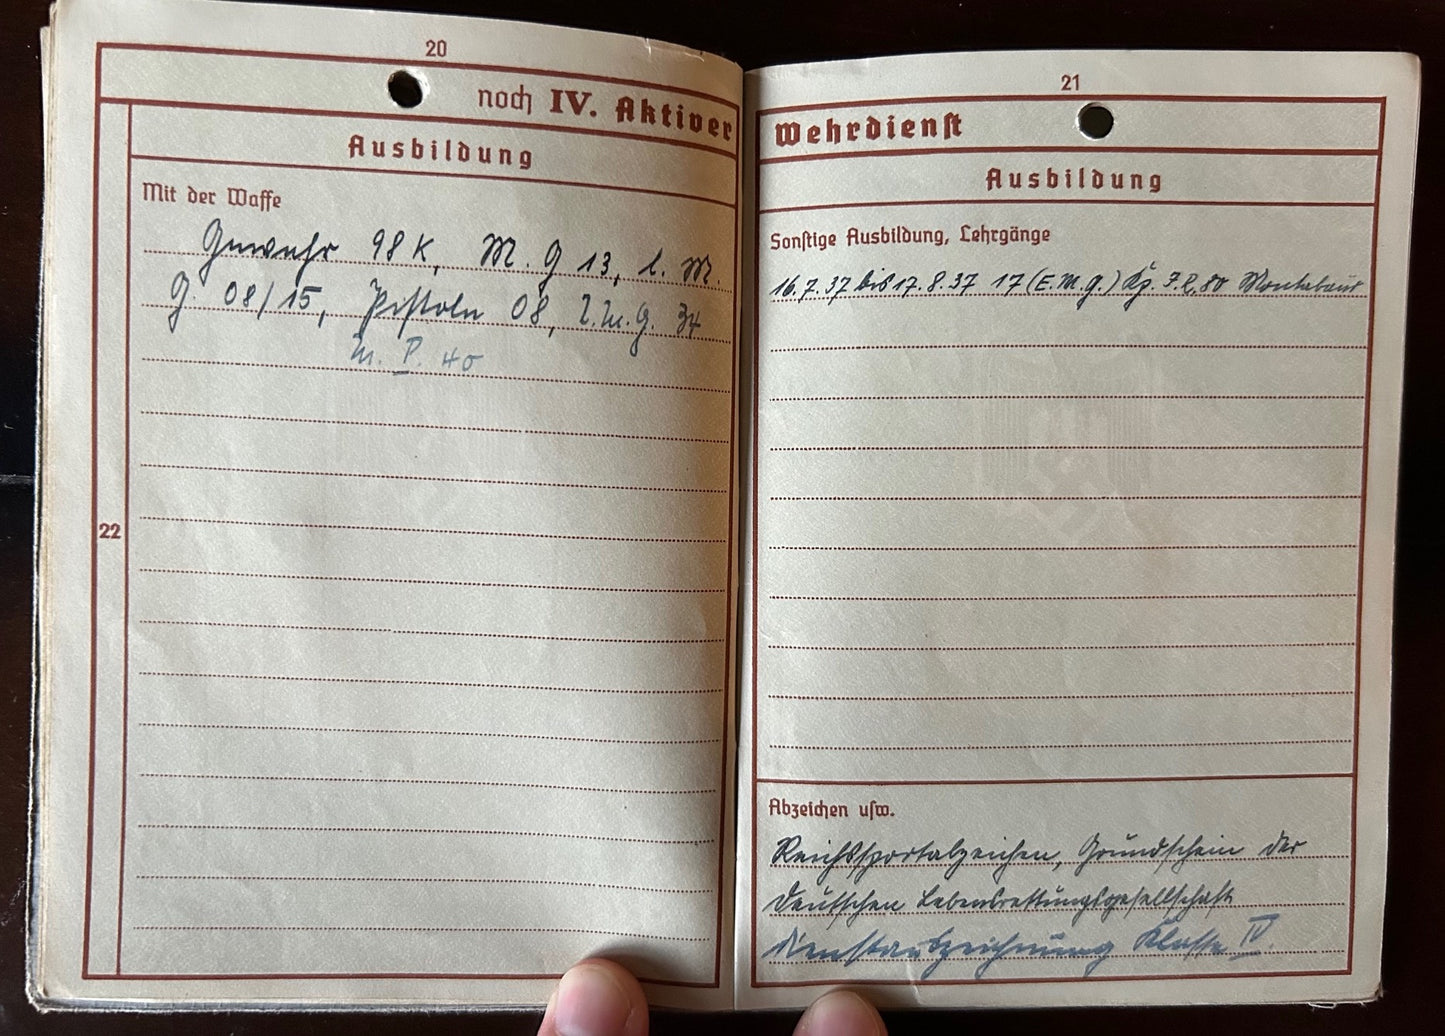 20
noch IV. Aktiver
Ausbildung
Mit der Waffe
Gewehr 98 K, M. G 13, l. M.
G. 08/15, Pistole 08, l. M. G. 34
M. P. 40
22
21
Wehrdienst
Ausbildung
Sonstige Ausbildung, Lehrgänge
16. 7. 37 bis 17. 8. 37 17 (E. M. G.) Kp. I. R. 80 Montabaur
Abzeichen usw.
Reichssportabzeichen, Grundschein der
Deutschen Lebensrettungsgesellschaft
Dienstauszeichnung Klasse IV.